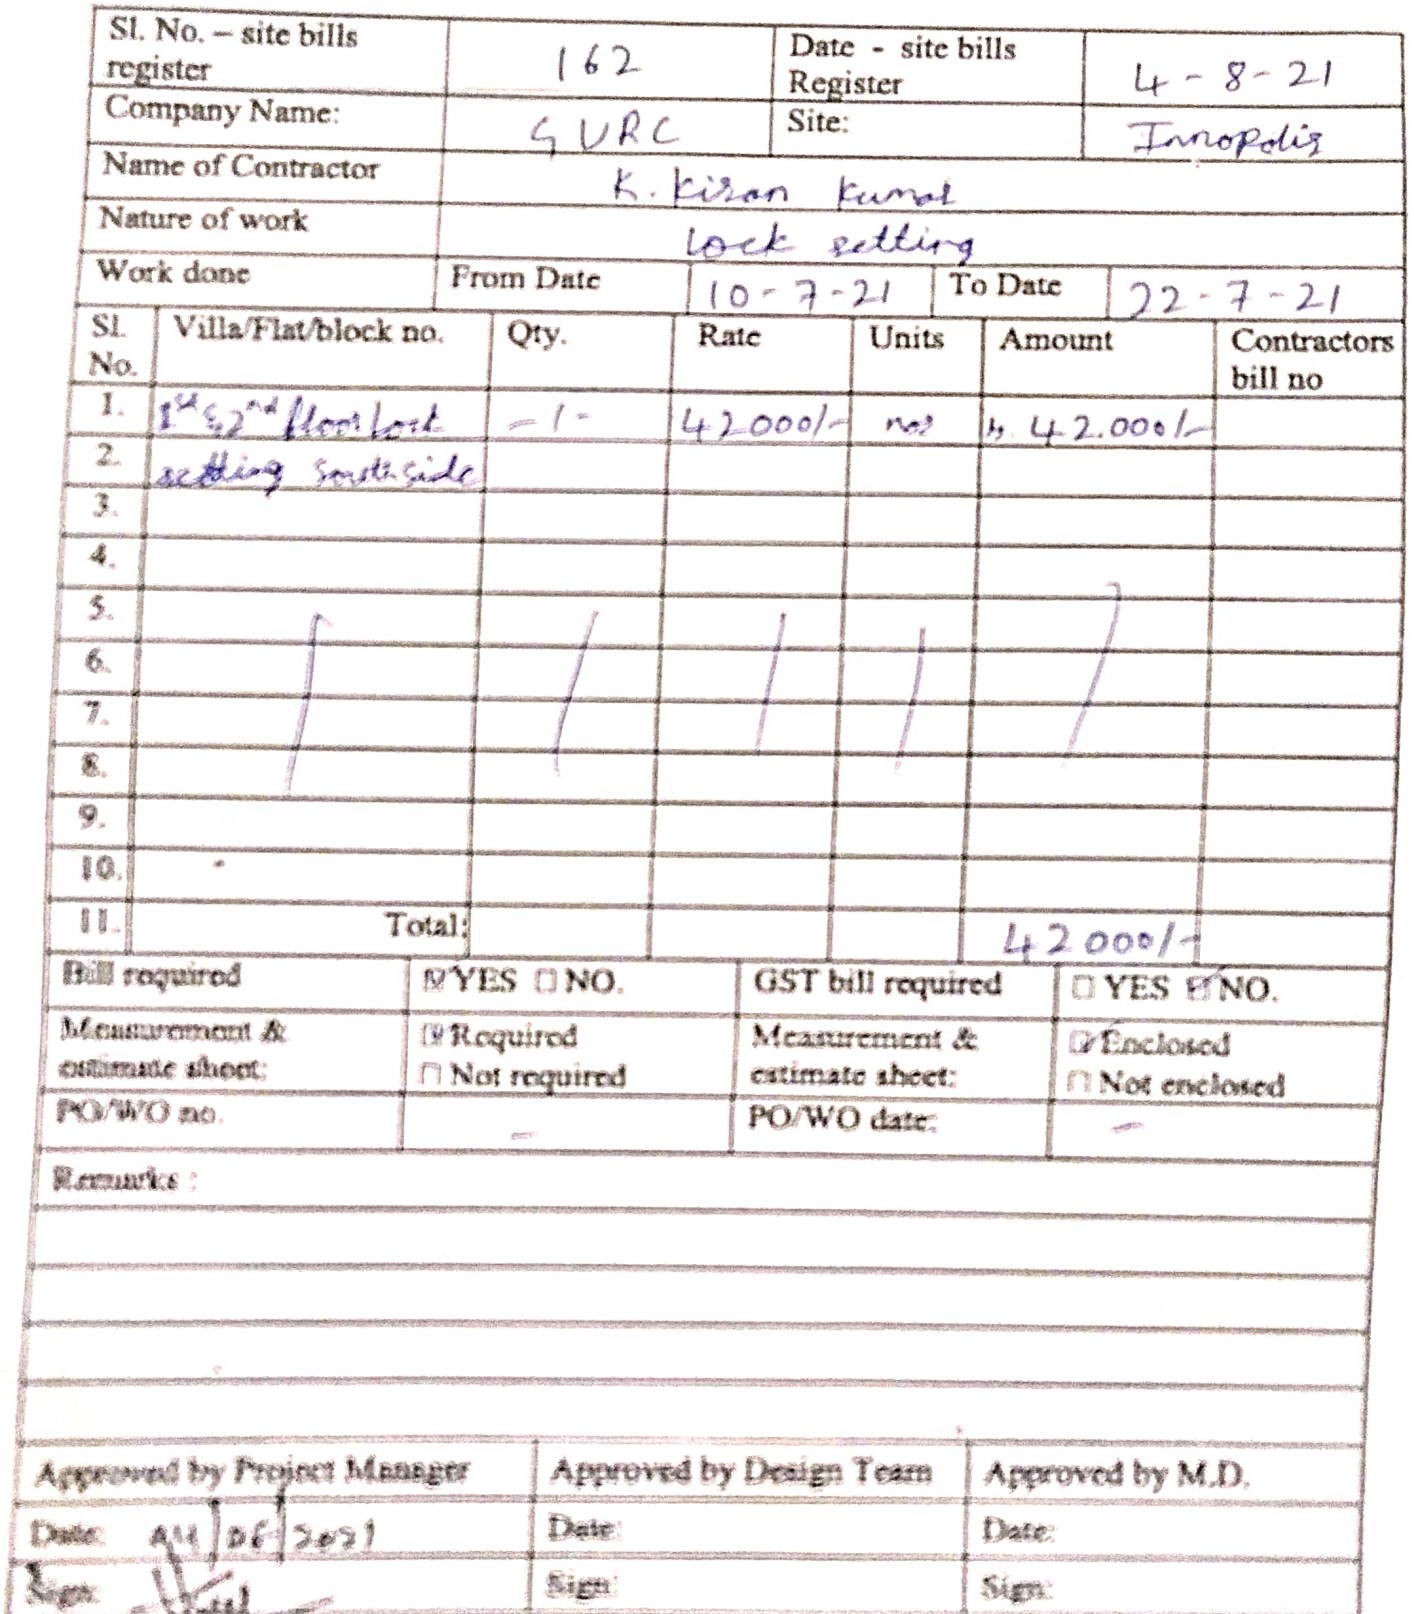 Sl. No. – site bills register 162 Date - site bills Register 4-8-21
Company Name: GVRC Site: Innopolis
Name of Contractor K. Kiran Kumar
Nature of work Lock setting
Work done From Date 10-7-21 To Date 22-7-21
Sl. No. Villa/Flat/block no. Qty. Rate Units Amount Contractors bill no
1. 1st & 2nd floor Lock -1- 42000/- nos 42.000/-
2. setting south side
3.
4.
5.
6.
7.
8.
9.
10.
11. Total: 42000/-
Bill required ☑YES ☐NO. GST bill required ☐YES ☑NO.
Measurement & estimate sheet: ☑Required ☐Not required Measurement & estimate sheet: ☑Enclosed ☐Not enclosed
PO/WO no. – PO/WO date: –
Remarks :
Approved by Project Manager Approved by Design Team Approved by M.D.
Date: /2021 Date: Date:
Sign: Sign: Sign: